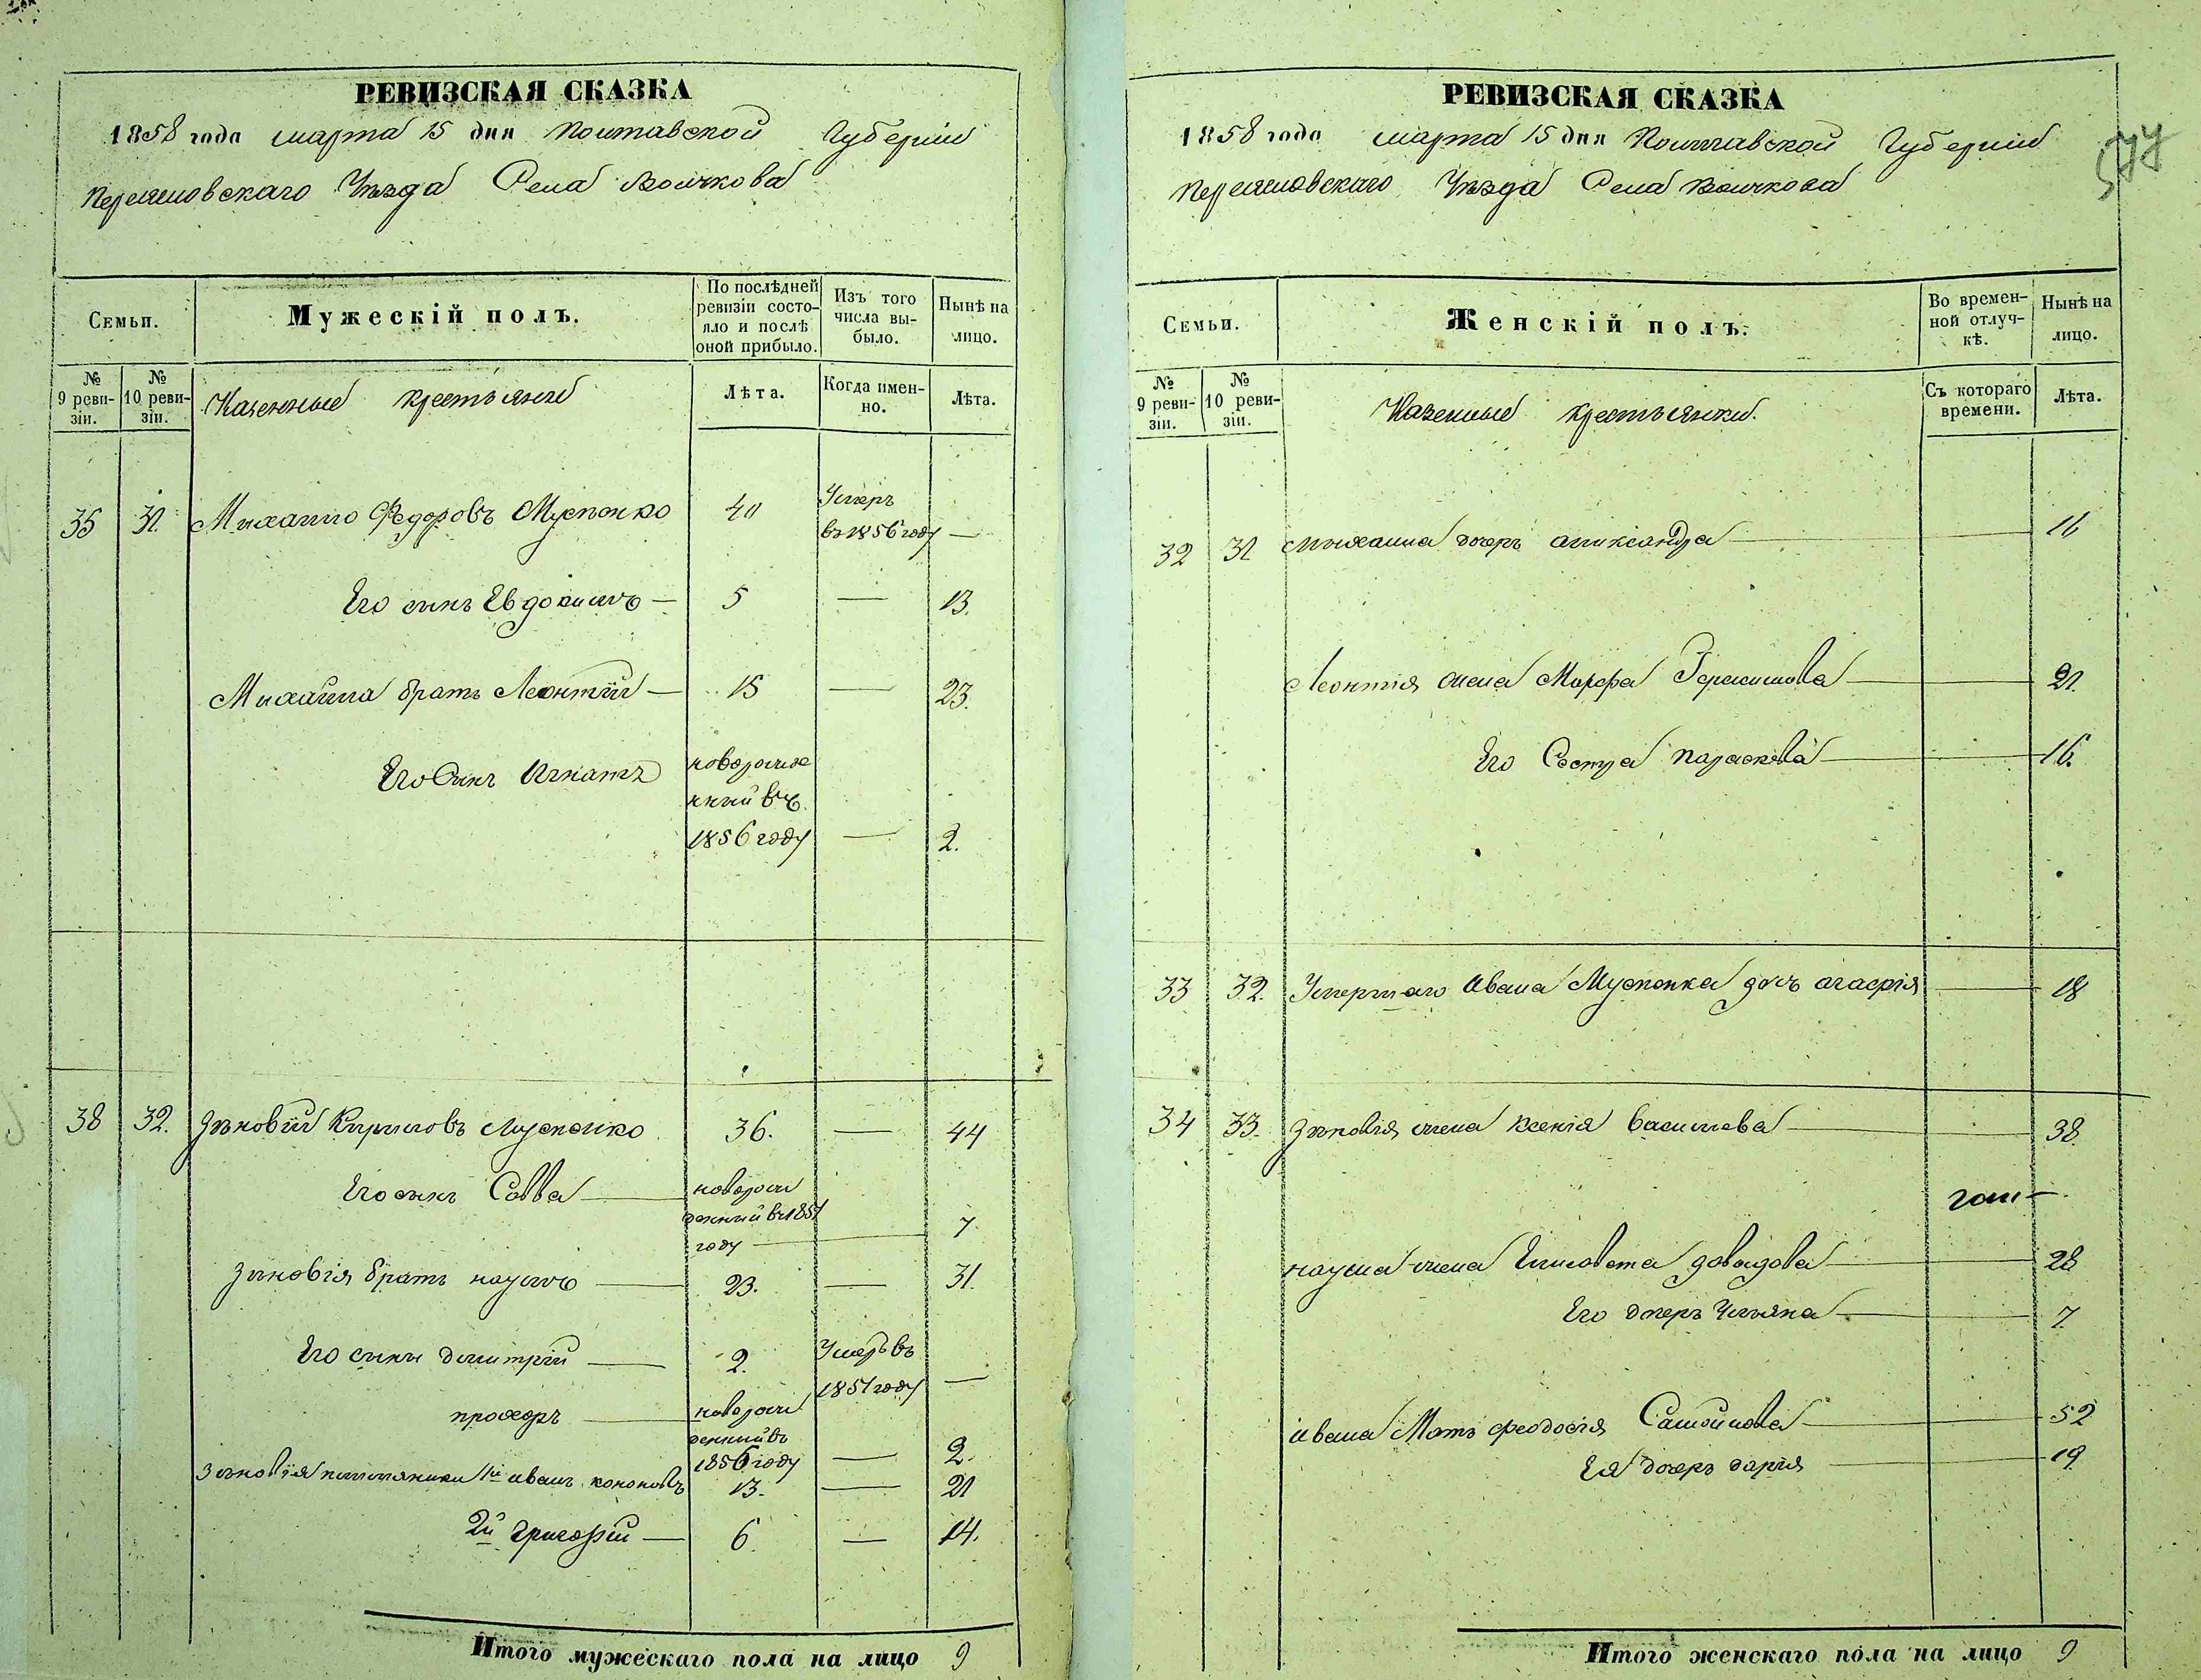 РЕВИЗСКАЯ СКАЗКА
1858 года марта 15 дня Полтавской Губерніи
Переяславскаго Уѣзда Села Войткова
Семьи.
Мужескій полъ.
По послѣдней ревизіи состояло и послѣ оной прибыло.
Изъ того числа выбыло.
Нынѣ на лицо.
№ 9 ревизіи.
№ 10 ревизіи.
Казенные крестьяне
Лѣта.
Когда именно.
Лѣта.
35 31. Михайло Федоровъ Муспонко 40 Умеръ въ 1856 году —
Его сынъ Евдокимъ — 5 — 13.
Михайла братъ Леонтій — 15 — 23.
Его Сынъ Игнатъ новорожденный въ 1856 году — 2.
38 32. Зѣновій Кириловъ Муспонко 36. — 44
Его сынъ Савва новорожденный в 1851 году — 7.
Зиновія братъ наумъ — 23. — 31.
Его сыны димитрій — 2. Умеръ въ 1851 году —
прохоръ — новорожденный въ 1856 году — 2.
Зѣновія племянники 1й иванъ кононовъ 13. — 21
2й григорій — 6 — 14.
Итого мужескаго пола на лицо 9
РЕВИЗСКАЯ СКАЗКА
1858 года марта 15 дня Полтавской Губерніи
Переяславскаго Уѣзда Села Войткова
577
Семьи.
Женскій полъ.
Во временной отлучкѣ.
Нынѣ на лицо.
№ 9 ревизіи.
№ 10 ревизіи.
Казенные крестьянки.
Съ котораго времени.
Лѣта.
32 31 Михаила дочерь александра — 11
Леонтія жена Марфа Герасимова — 21.
Его Сестра параскева — 16.
33 32. Умершаго Ивана Муспонка дочъ агафія — 18
34 33. Зѣновія жена Ксенія Василева — 38.
наума жена Елисовета довидова — 28
Его дочерь Ульяна — 7.
ивана Мать феодосія Самойлова — 52
Ея дочерь дарія — 19.
Итого женскаго пола на лицо 9